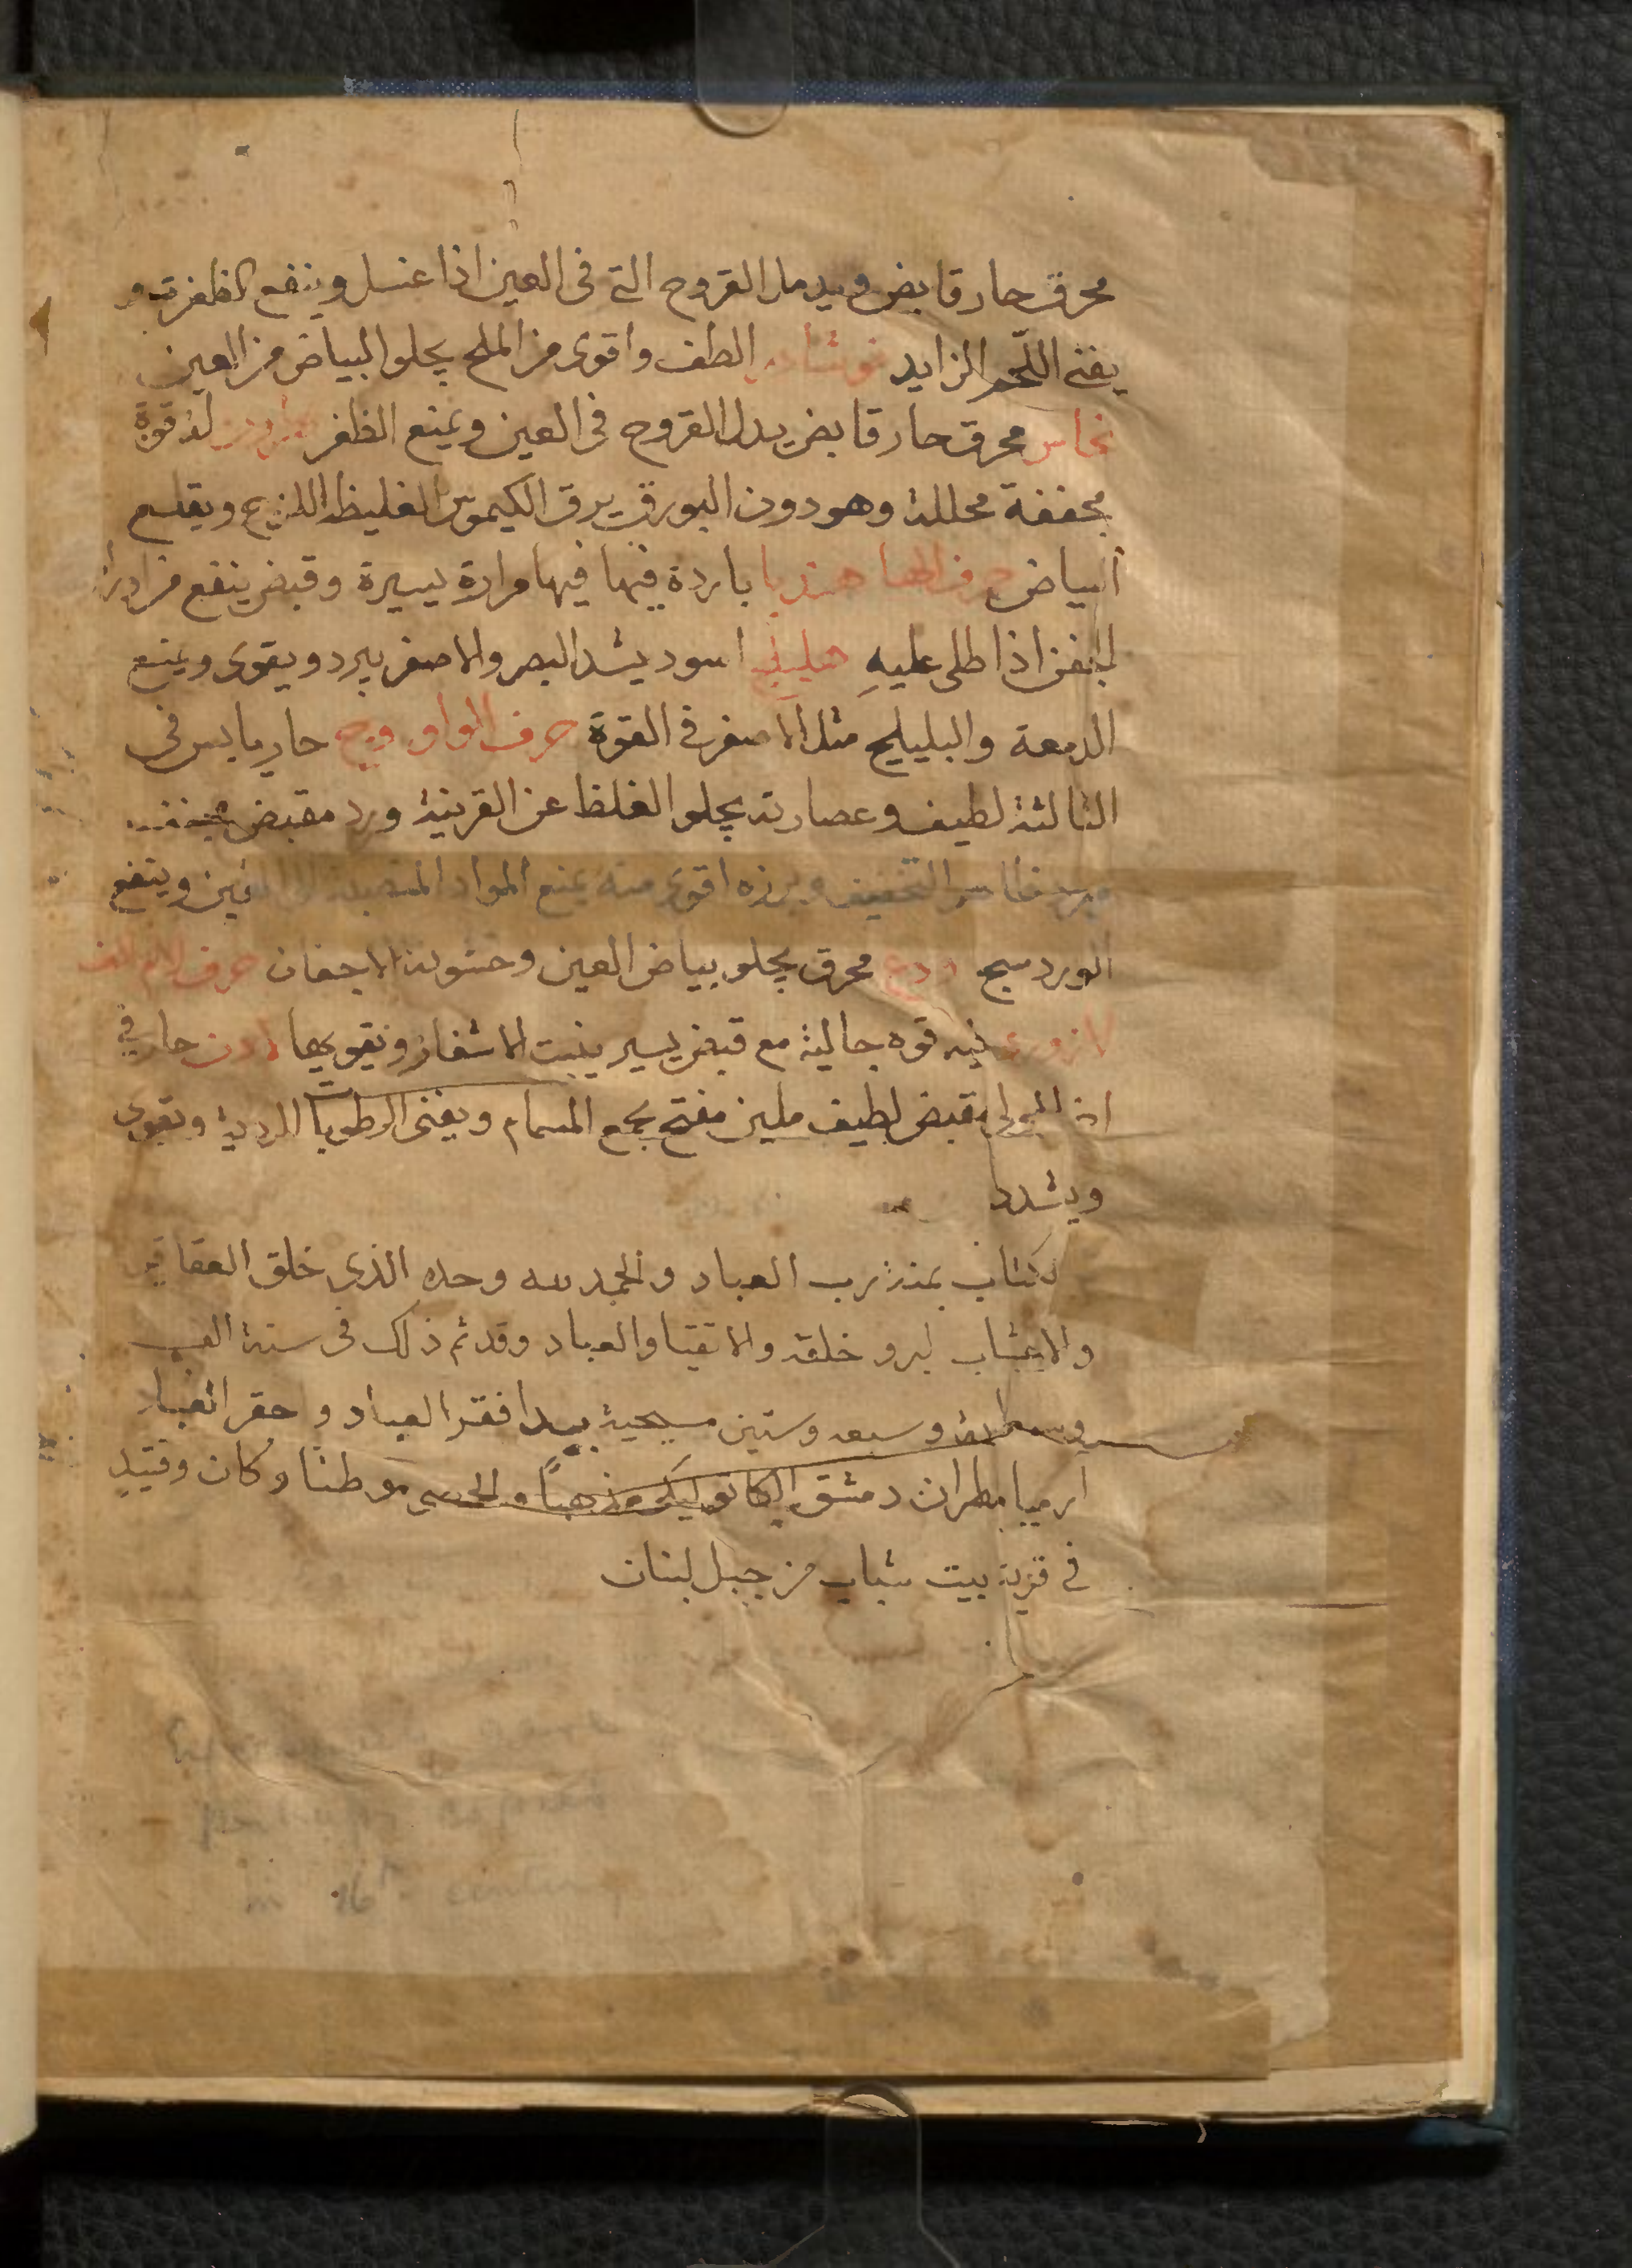 محرق حار قابض ويدمل القروح التى فى العين اذا غسل وينفع الظفرة و
يفنى اللّحم الزايد نوشادر الطف واقوى من الملح يجلو البياض من العين
نحاس محرق حار قابض يدمل القروح فى العين ويمنع الظفر نطرون له قوة
مجففة محللة وهو دون البورق يرق الكيموس الغليظ اللزج ويقلع
البياض حرف الها هندبا باردة فيها فيها مرارة يسيرة وقبض ينفع من
الجفن اذا طلى عليهِ هليلج اسود يشد البصر والاصفر يبرد ويقوى ويمنع
الدمعة والبليلج مثل الاصفر فى القوة حرف الواو وج حار يابس فى
الثالثة لطيف وعصارته يجلو الغلظ عن القرنية ورد مقبض
التجفيف وبزره اقوى منه يمنع المواد المنصبة الى العين وينفع
الوردسج ودع محرق يجلو بياض العين وخشونة الاجفان حرف اللام الف
لازورد فيه قوه جالية مع قبض يسير ينبت الاشفار ويقويها لادن حار فى
الاولى مقبض لطيف ملين مفتح يجمع المسام ويفنى الرطوبات الردية ويقوى
ويشدد
كتاب بمنة رب العباد والحمد لله وحده الذى خلق العقاقير
والاعشاب لبرو خلقه والاتقيا والعباد وقد تم ذلك فى سنة الف
وسبعة وستين مسيحية بيد افقر العباد وحقر
ارميا مطران دمشق الكاتوليكى مذهباً والحمصى موطنًا وكان وقتيدٍ
فى قرية بيت شباب من جبل لبنان
in 16th century